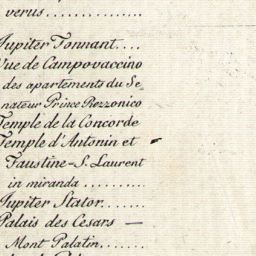 verus...............
Jupiter Tonnant....
Vue de Campovaccino
des apartements du Se-
nateur Prince Rezzonico
Temple de la Concorde
Temple d'Antonin et
Faustine-S. Laurent
in miranda..........
Jupiter Stator......
Palais des Cesars —
Mont Palatin.......